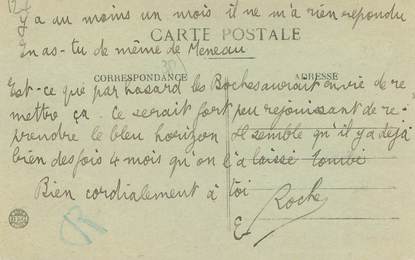 Y a au moins un mois il ne m'a rien repondu
En as-tu de même de Meneau
CARTE POSTALE
CORRESPONDANCE
ADRESSE
Est-ce que par hasard les Boches auraient envie de re-
mettre ça. Ce serait fort peu rejouissant de re-
prendre le bleu horizon Il semble qu'il y a déjà
bien des fois 4 mois qu'on l'a laissé tombé
Bien cordialement à toi
E Roche